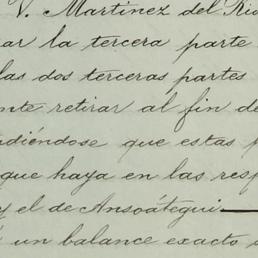 V. Martinez del Rio
ar la tercera parte
las dos terceras partes
nte retirar al fin de
diéndose que estas
que haya en las resp
y el de Ansoátegui
un balance exacto